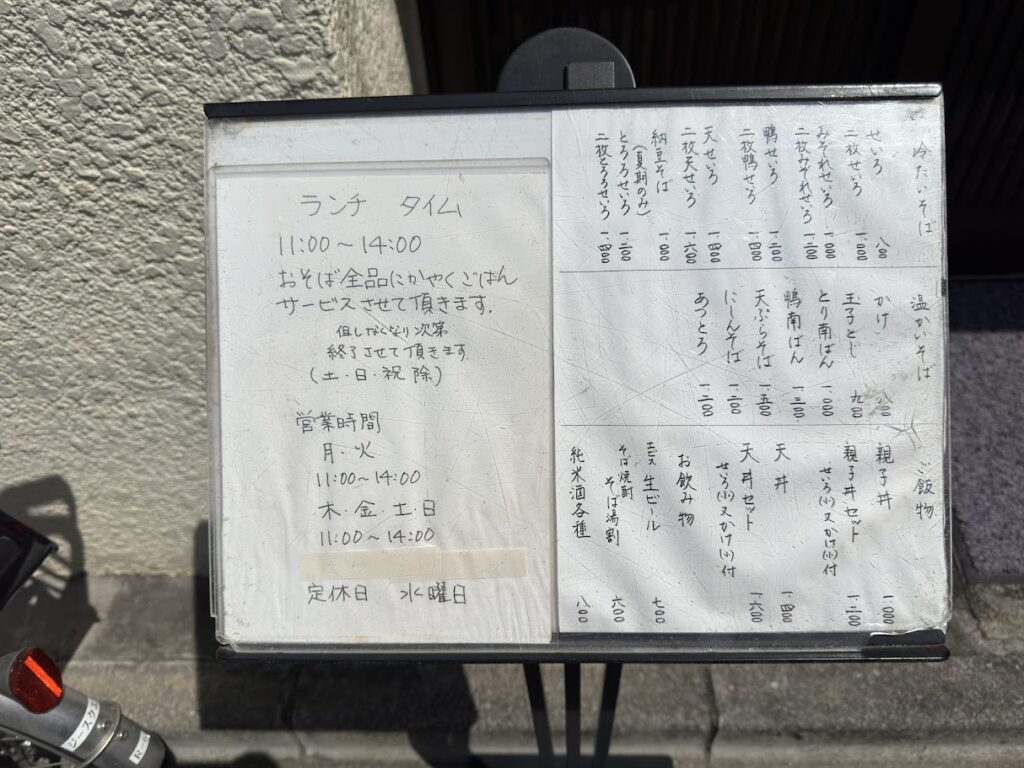 ランチ タイム
11:00～14:00
おそば全品にかやくごはん
サービスさせて頂きます.
但しなくなり次第
終了させて頂きます
(土・日・祝 除)
営業時間
月・火
11:00～14:00
木・金・土・日
11:00～14:00
定休日 水曜日
冷たいそば
せいろ 八〇〇
二枚せいろ 一、〇〇〇
みぞれせいろ 一、〇〇〇
二枚みぞれせいろ 一、二〇〇
鴨せいろ 一、二〇〇
二枚鴨せいろ 一、四〇〇
天せいろ 一、四〇〇
二枚天せいろ 一、六〇〇
納豆そば 一、〇〇〇
(夏期のみ)
とろろせいろ 一、二〇〇
二枚とろろせいろ 一、四〇〇
温かいそば
かけ 八〇〇
玉子とじ 九〇〇
とり南ばん 一、〇〇〇
鴨南ばん 一、三〇〇
天ぷらそば 一、五〇〇
にしんそば 一、二〇〇
あつとろ 一、二〇〇
ご飯物
親子丼 一、〇〇〇
親子丼セット 一、二〇〇
せいろ(小)又かけ(小)付
天丼 一、四〇〇
天丼セット 一、六〇〇
せいろ(小)又かけ(小)付
お飲み物
ヱビス生ビール 七〇〇
そば焼酎
そば湯割 六〇〇
純米酒各種 八〇〇